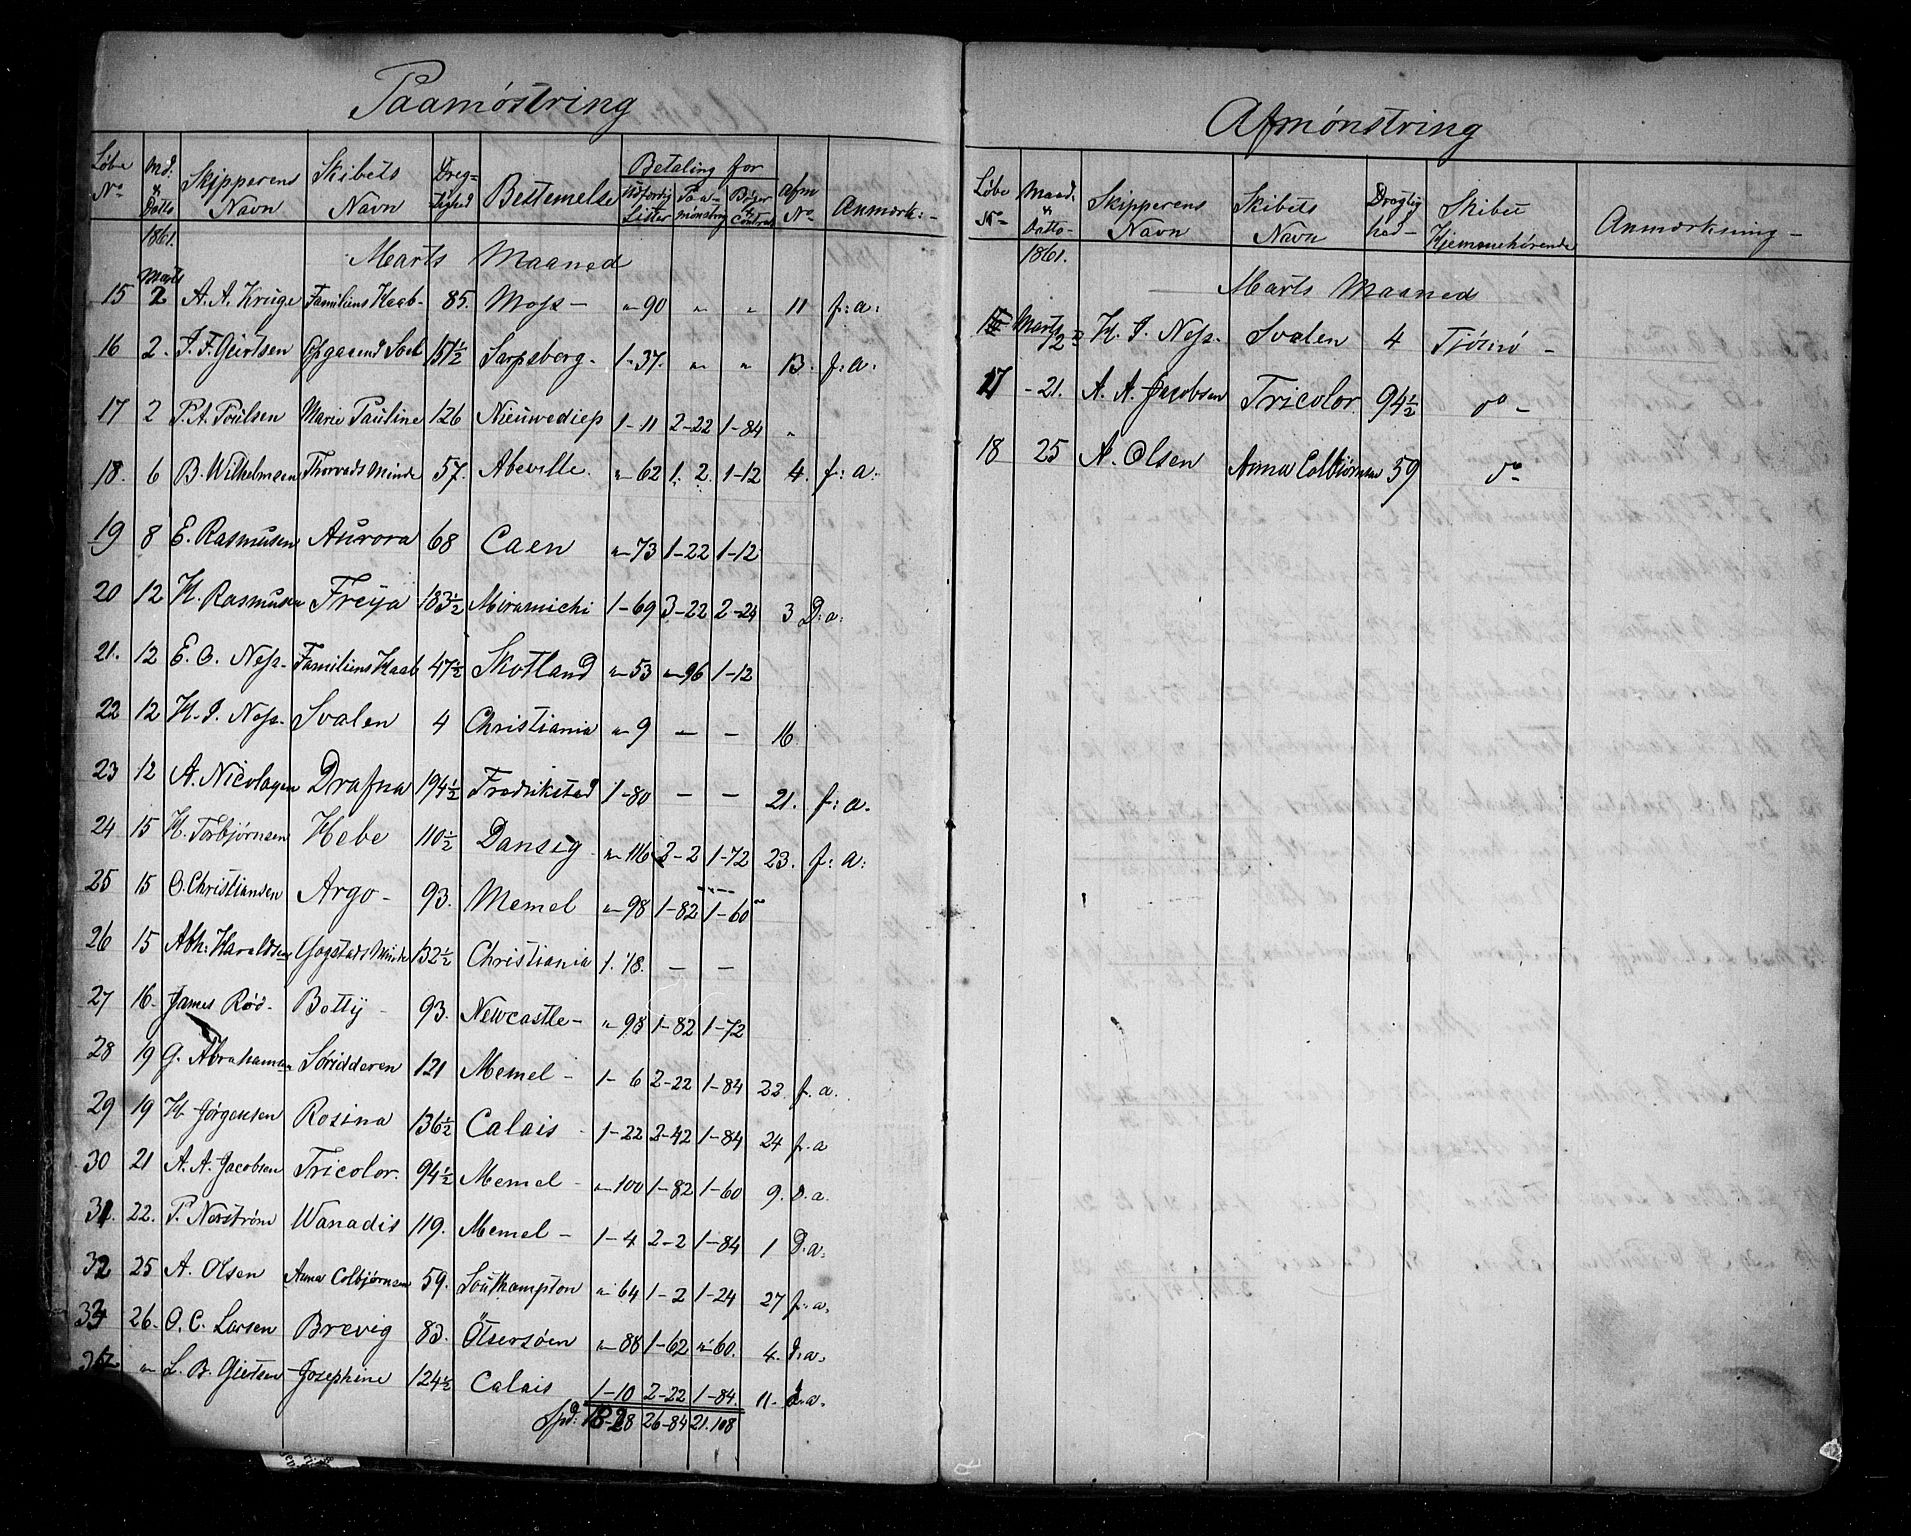 Paamøstring
Løbe No Md: & Datto Skipperens Navn Skibets Navn Dreg-tighed Bestemelse Betaling for Udfærdig Lister Paa-mønstring Bøger & Contract Afm No Anmærk:-
1861. Marts Maaned
15 Marts 2 A. A. Kruge Familiens Haab- 85. Moss - „-90 „ „ 11 f: a:
16 2. J. F. Giertsen 157½ Sarpsborg- 1-37. „ „ 13. f: a:
17 2 P. A. Poulsen Marie Pauline 126 Nieuwediep 1-11 2-22 1-84 „
18. 6 B. Wilhelmsen Thorvads Minde 57. Abeville. „-62 1. 2. 1-12 4. f: a:
19 8 E. Rasmusen Aurora 68 Caen „-73 1-22 1-12
20 12 H. Rasmusen Freija 183½ Miramichi 1-69 3-22 2-24 3 D: a:
21. 12 E. O. Ness- Familiens Haab 47½ Skotland „-53 „-96 1-12
22 12 H. I. Ness- Svalen 4 Christiania „-9 - - 16.
23 12 A. Nicolaysen Drafna 194½ Fredrikstad 1-80 - - 21. f: a.
24 15 H. Torbjørnsen Hebe 110½ Dansig „-116 2-2 1-72 23. f: a:
25 15 O. Christiansen Argo- 93. Memel „-98 1-82 1-60
26 15 Abh: Haraldsen Gogstads Minde 132½ Christiania 1. 18. - -
27 16- James Rød- Betty- 93. Newcastle- „-98 1-82 1-72
28 19 G. Abrahamsen Søridderen 121 Memel- 1-6 2-22 1-84 22. f. a.
29 19 H. Jørgensen Rosina 136½ Calais 1-22 2-42 1-84 24 f. a
30 21 A. A. Jacobsen Tricolor. 94½ Memel- „-100 1-82 1-60 9. D. a.
31. 22. P. Norstrøm Wanadis 119. Memel- 1-4 2-2 1-84 1 D. a:
32 25 A. Olsen Anna Colbjørnsen 59. Southampton „-64 1-2 1-24 27 f:-a:
33 26- O. C. Larsen Brevig 83. Östersöen „-88 1-62 „-60. 4. D:a:
„ L. B. Giertsen Josephine 124½ Calais 1-10 2-22 1-84. 11- D:a.
Spd: 26-84 21.108
Afmønstring
Løbe No- Maad: & Datto- Skipperens Navn Skibets Navn Drægtig hed- Skibet Hjemmehørende Anmærkning-
1861. Marts Maaned
Marts H. I. Ness- Svalen 4 Tjömö-
17 -21. A. A. Jacobsen Tricolor 94½ do-
18 25 A. Olsen Anna Colbiørnsen 59 do